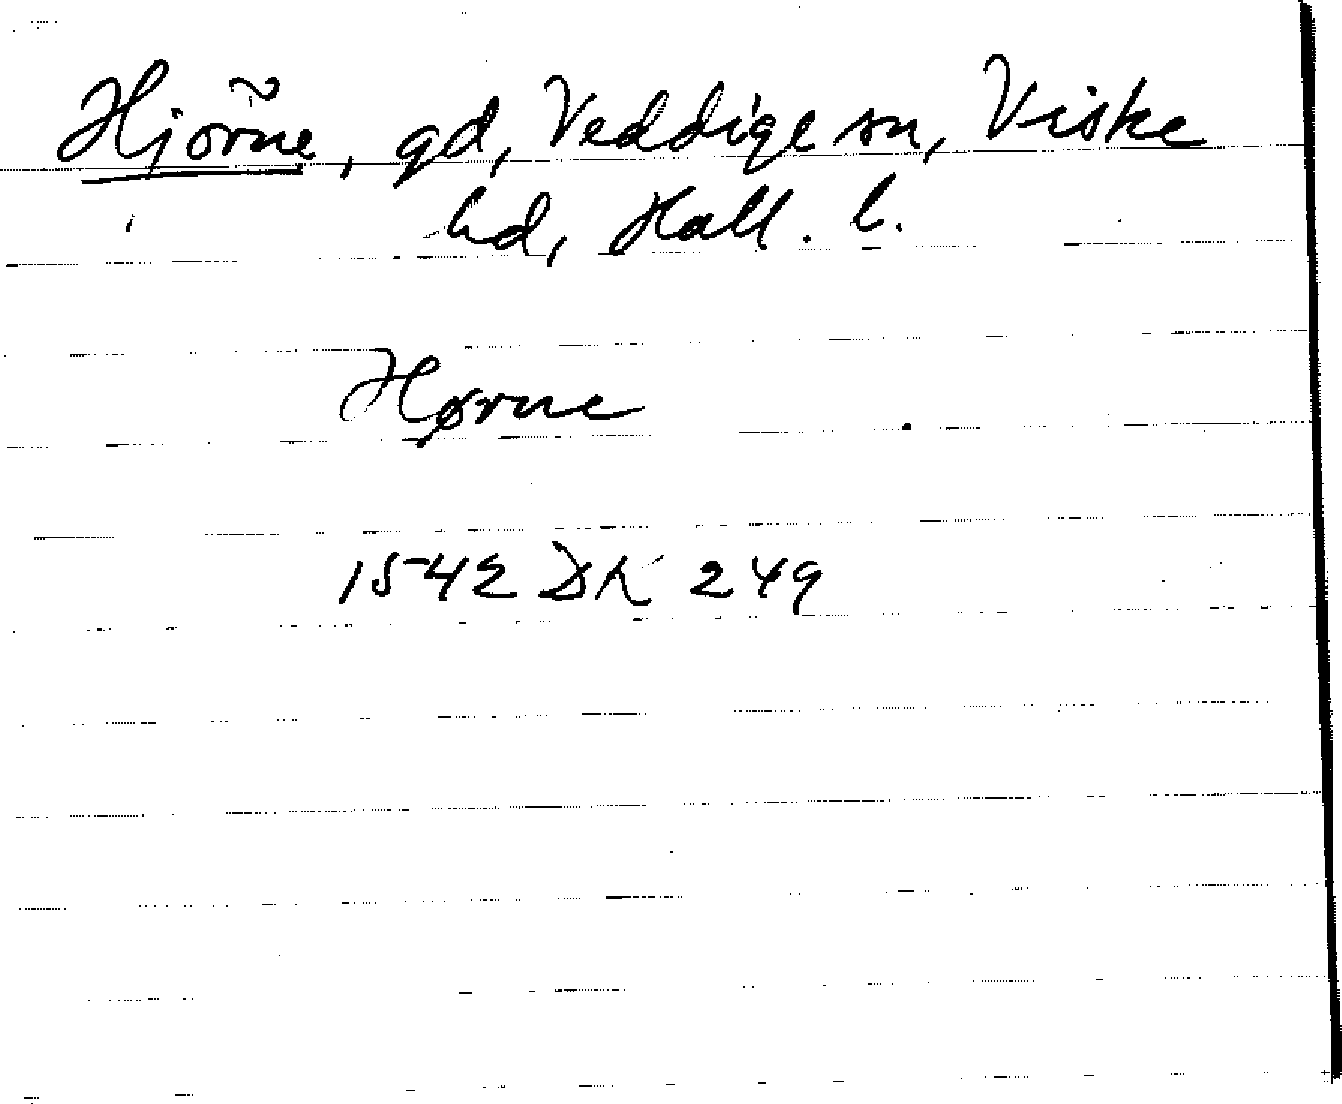 Hjörne, gd, Veddige sn, Viske
hd, Hall. l.
Hørne
1542 DK 249